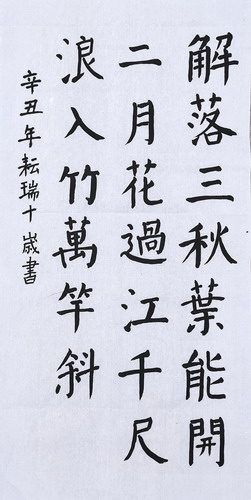 解落三秋葉能開
二月花過江千尺
浪入竹萬竿斜
辛丑年耘瑞十歲書